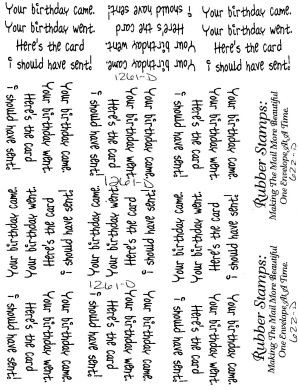 Your birthday came.
Your birthday went.
Here's the card
i should have sent!
Your birthday came.
Your birthday went.
Here's the card
i should have sent!
Your birthday came.
Your birthday went.
Here's the card
i should have sent!
1261-D
Your birthday came.
Your birthday went.
Here's the card
i should have sent!
Your birthday came.
Your birthday went.
Here's the card
i should have sent!
Your birthday came.
Your birthday went.
Here's the card
i should have sent!
Rubber Stamps:
Making The Mail More Beautiful
One Envelope At A Time.
622-D
Your birthday came.
Your birthday went.
Here's the card
i should have sent!
Your birthday came.
Your birthday went.
Here's the card
i should have sent!
Your birthday came.
Your birthday went.
Here's the card
i should have sent!
1261-D
Your birthday came.
Your birthday went.
Here's the card
i should have sent!
Your birthday came.
Your birthday went.
Here's the card
i should have sent!
Your birthday came.
Your birthday went.
Here's the card
i should have sent!
Rubber Stamps:
Making The Mail More Beautiful
One Envelope At A Time.
622-D